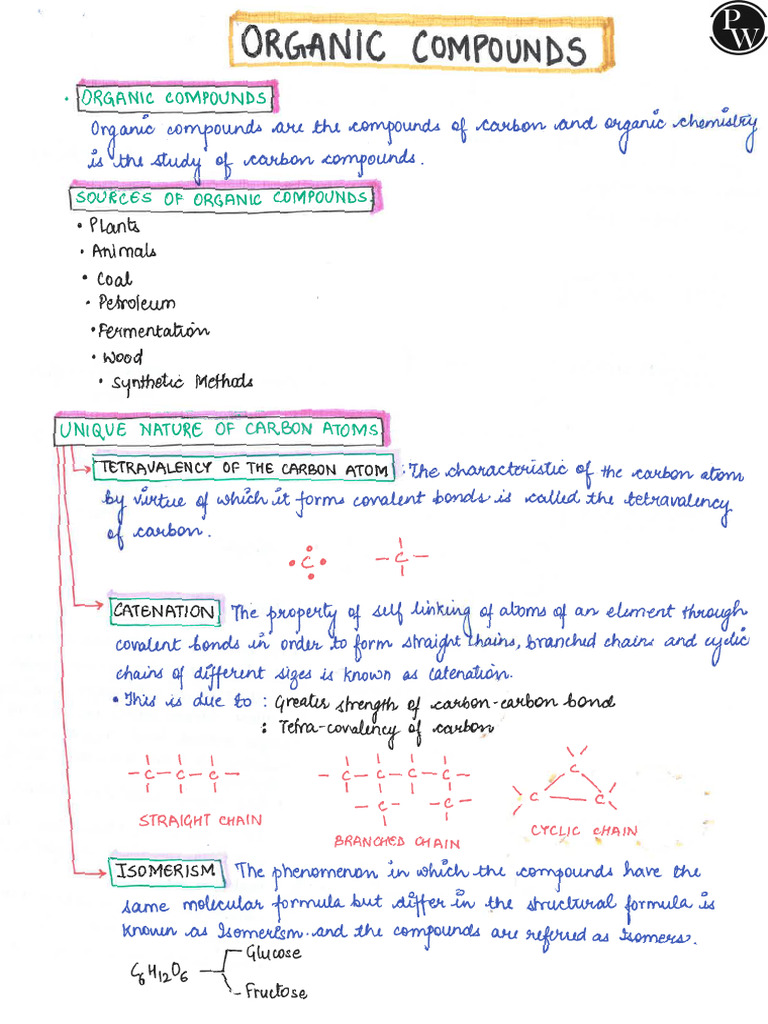 PW
ORGANIC COMPOUNDS
• ORGANIC COMPOUNDS
Organic compounds are the compounds of carbon and organic chemistry
is the study of carbon compounds.
SOURCES OF ORGANIC COMPOUNDS
• Plants
• Animals
• Coal
• Petroleum
• Fermentation
• Wood
• Synthetic Methods
UNIQUE NATURE OF CARBON ATOMS
TETRAVALENCY OF THE CARBON ATOM : The characteristic of the carbon atom
by virtue of which it forms covalent bonds is called the tetravalency
of carbon.
C C
CATENATION The property of self linking of atoms of an element through
covalent bonds in order to form straight chains, branched chains and cyclic
chains of different sizes is known as catenation.
• This is due to : Greater strength of carbon-carbon bond
: Tetra-covalency of carbon
C
– C – C – C – – C – C – C – C –
C C
– C – – C –
STRAIGHT CHAIN
BRANCHED CHAIN
CYCLIC CHAIN
ISOMERISM The phenomenon in which the compounds have the
same molecular formula but differ in the structural formula is
known as Isomerism and the compounds are referred as Isomers.
Glucose
C6H12O6
Fructose